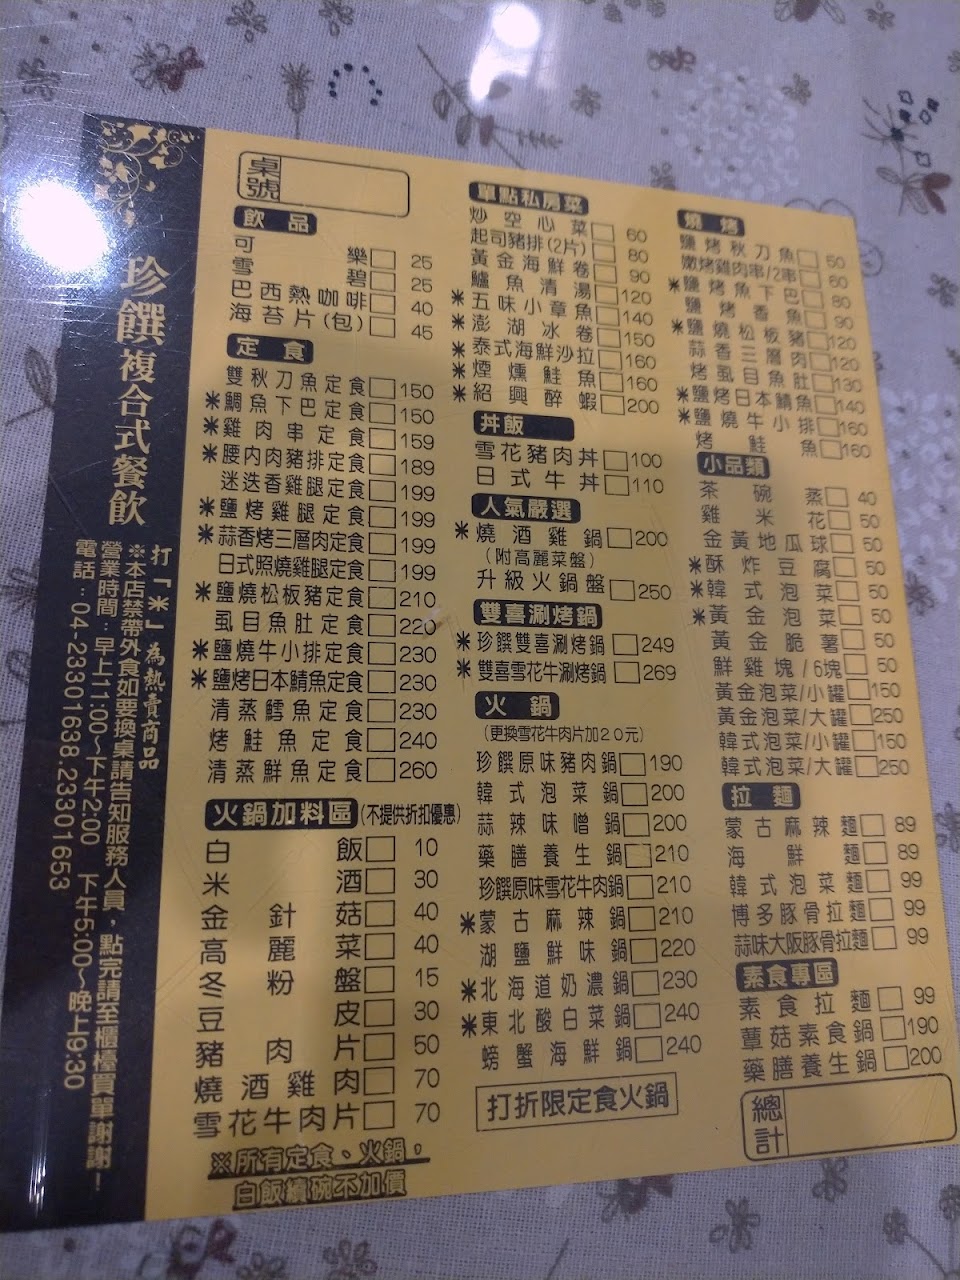 珍饌複合式餐飲
打「*」為熱賣商品
※本店禁帶外食如要換桌請告知服務人員，點完請至櫃檯買單謝謝！
營業時間：早上11:00~下午2:00 下午5:00~晚上9:30
電話：04-23301638.23301653
桌號
飲品
可樂 25
雪碧 25
巴西熱咖啡 40
海苔片(包) 45
定食
雙秋刀魚定食 150
*鯛魚下巴定食 150
*雞肉串定食 159
*腰內肉豬排定食 189
迷迭香雞腿定食 199
*鹽烤雞腿定食 199
*蒜香烤三層肉定食 199
日式照燒雞腿定食 199
*鹽燒松板豬定食 210
虱目魚肚定食 220
*鹽燒牛小排定食 230
*鹽烤日本鯖魚定食 230
清蒸鱈魚定食 230
烤鮭魚定食 240
清蒸鮮魚定食 260
火鍋加料區(不提供折扣優惠)
白飯 10
米酒 30
金針菇 40
高麗菜 40
冬粉盤 15
豆皮 30
豬肉片 50
燒酒雞肉 70
雪花牛肉片 70
※所有定食、火鍋，
白飯續碗不加價
單點私房菜
炒空心菜 60
起司豬排(2片) 80
黃金海鮮卷 90
鱸魚清湯 120
*五味小章魚 140
*澎湖冰卷 150
*泰式海鮮沙拉 160
*煙燻鮭魚 160
*紹興醉蝦 200
丼飯
雪花豬肉丼 100
日式牛丼 110
人氣嚴選
*燒酒雞鍋 200
(附高麗菜盤)
升級火鍋盤 250
雙喜涮烤鍋
*珍饌雙喜涮烤鍋 249
*雙喜雪花牛涮烤鍋 269
火鍋
(更換雪花牛肉片加20元)
珍饌原味豬肉鍋 190
韓式泡菜鍋 200
蒜辣味噌鍋 200
藥膳養生鍋 210
珍饌原味雪花牛肉鍋 210
*蒙古麻辣鍋 210
湖鹽鮮味鍋 220
*北海道奶濃鍋 230
*東北酸白菜鍋 240
螃蟹海鮮鍋 240
打折限定食火鍋
燒烤
鹽烤秋刀魚 50
嫩烤雞肉串/2串 60
*鹽烤魚下巴 80
鹽烤香魚 90
*鹽燒松板豬 120
蒜香三層肉 120
烤虱目魚肚 130
*鹽烤日本鯖魚 140
*鹽燒牛小排 160
烤鮭魚 160
小品類
茶碗蒸 40
雞米花 50
金黃地瓜球 50
*酥炸豆腐 50
*韓式泡菜 50
*黃金泡菜 50
黃金脆薯 50
鮮雞塊/6塊 50
黃金泡菜/小罐 150
黃金泡菜/大罐 250
韓式泡菜/小罐 150
韓式泡菜/大罐 250
拉麵
蒙古麻辣麵 89
海鮮麵 89
韓式泡菜麵 99
博多豚骨拉麵 99
蒜味大阪豚骨拉麵 99
素食專區
素食拉麵 99
蕈菇素食鍋 190
藥膳養生鍋 200
總計